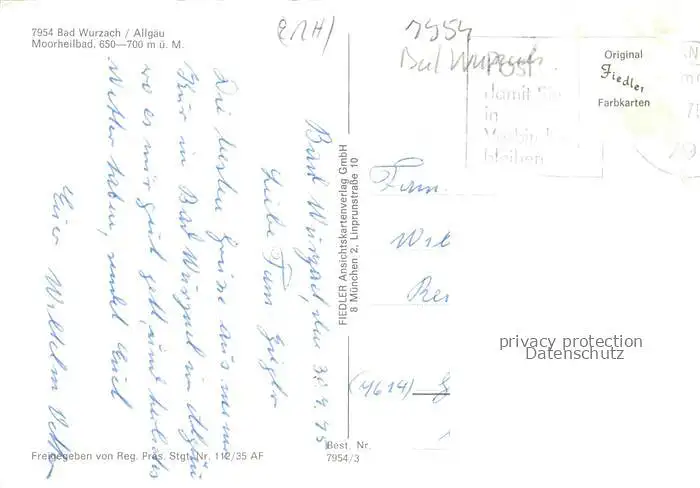 7954 Bad Wurzach / Allgäu
Moorheilbad. 650—700 m ü. M.
7954
Bad Wurzach
POST
damit Sie
in
Verbindung
bleiben
Original
Fiedler
Farbkarten
Bad Wurzach, den 30.4.75
Liebe Fam.
Die besten Grüße aus meiner
Kur in Bad Wurzach im Allgäu
wo es mir gut geht, und herrliches
Wetter haben, sendet Euch
Euer Wilhelm
FIEDLER Ansichtskartenverlag GmbH
8 München 2, Linprunstraße 10
Fam.
Wil
(4614)
privacy protection
Datenschutz
Freigegeben von Reg. Präs. Stgt. Nr. 112/35 AF
Best. Nr.
7954/3